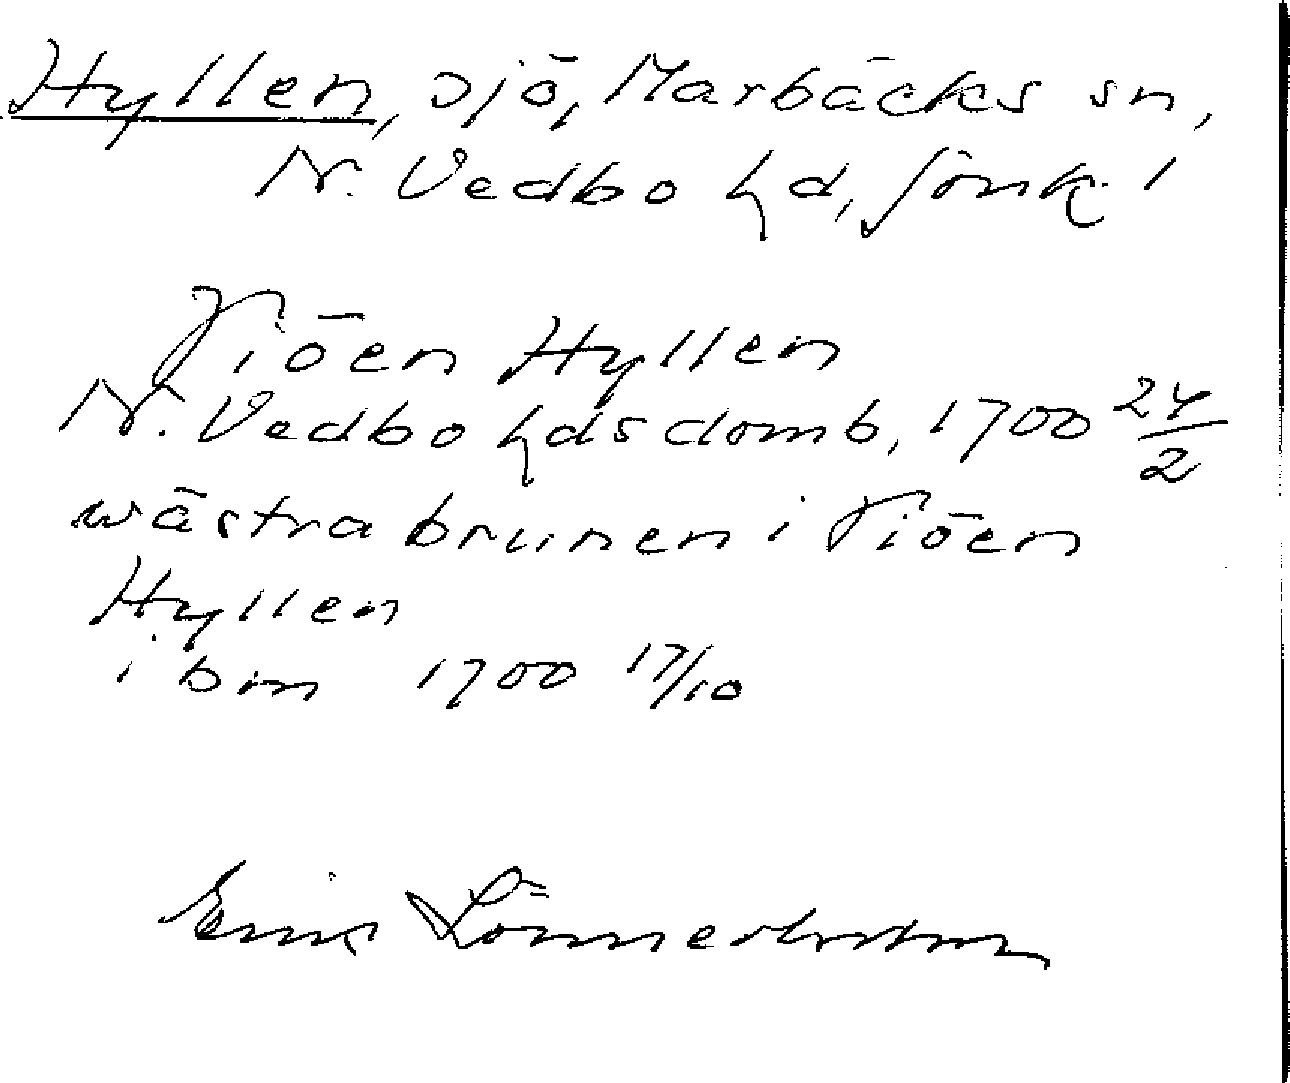 Hyllen, sjö, Marbäcks sn,
N. Vedbo hd, Jönk. l
Siöen Hyllen
N. Vedbo hds domb, 1700 24/2
wästra brunen i Siöen
Hyllen
ibm 1700 17/10